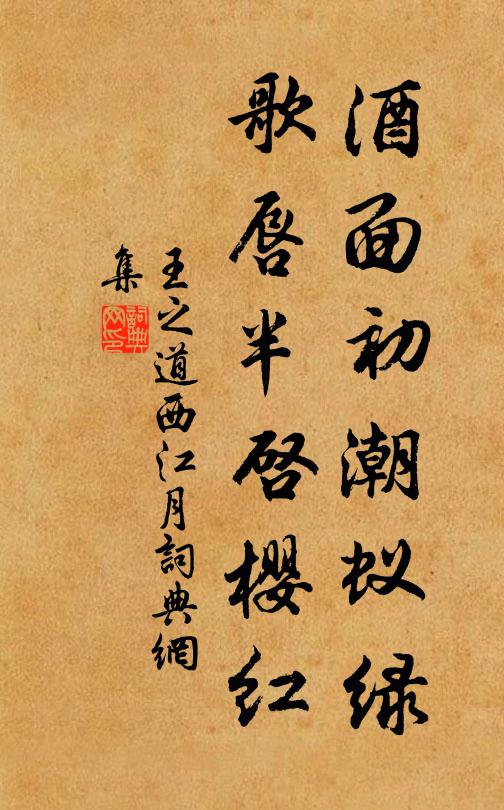 酒面初潮蚁绿
歌唇半启樱红
王之道西江月詞典網
集
詞典网印